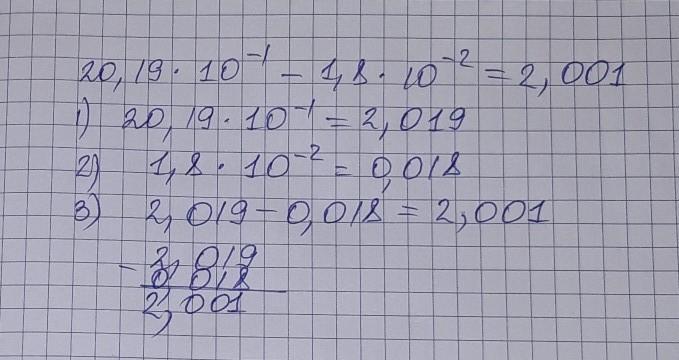 20,19 · 10⁻¹ – 1,8 · 10⁻² = 2,001
1) 20,19 · 10⁻¹ = 2,019
2) 1,8 · 10⁻² = 0,018
3) 2,019 – 0,018 = 2,001
2,019
– 0,018
2,001